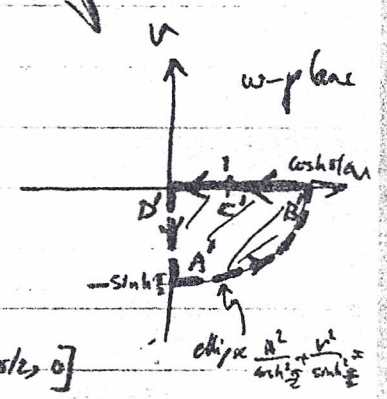 v
w-plane
1 cosh π/2 u
D' C' B'
A'
-sinh π/2
ellipse u²/cosh² π/2 + v²/sinh² π/2 =
π/2, 0]